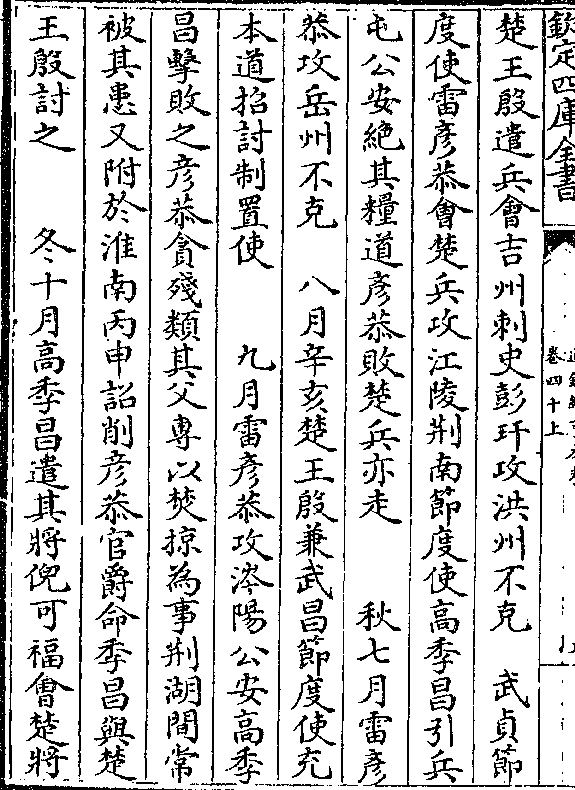 欽定四庫全書
卷四十上
楚王殷遣兵會吉州刺史彭玕攻洪州不克　武貞節
度使雷彥恭會楚兵攻江陵荆南節度使高季昌引兵
屯公安絶其糧道彥恭敗楚兵亦走　秋七月雷彥
恭攻岳州不克　八月辛亥楚王殷兼武昌節度使充
本道招討制置使　九月雷彥恭攻涔陽公安高季
昌擊敗之彥恭貪殘類其父專以焚掠為事荆湖間常
被其患又附於淮南丙申詔削彥恭官爵命季昌與楚
王殷討之　冬十月高季昌遣其將倪可福會楚將